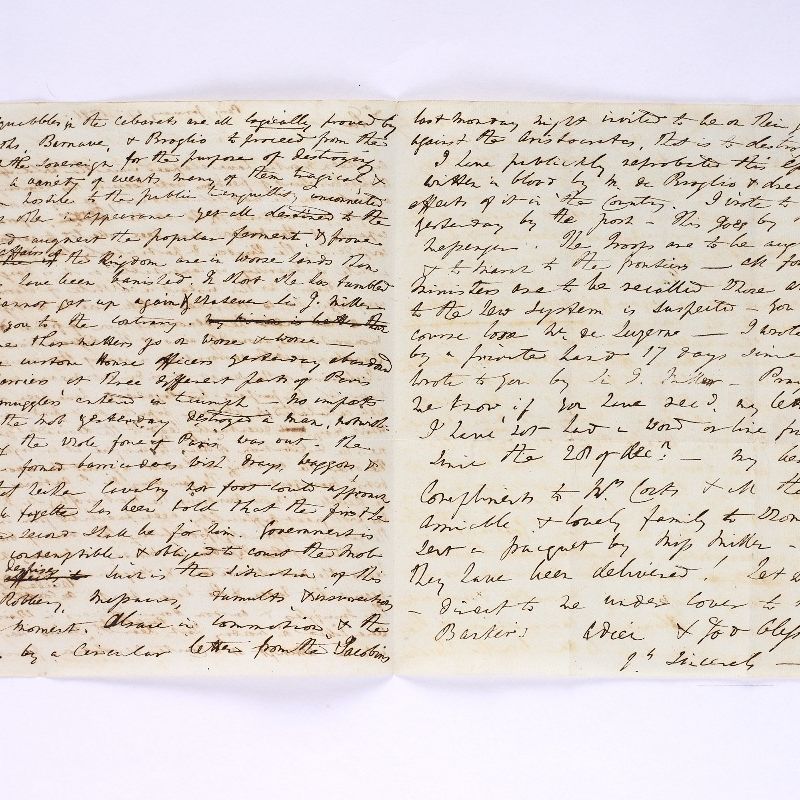 in the cabarets are all logically proved by
Bernave, & Broglio to proceed from the
the Sovereign for the purpose of destroying
a variety of events many of them tragical &
hostile to the public tranquillity unconnected
in appearance yet all destined to the
augment the popular ferment, & prove
affairs of the Kingdom are in worse hands than
have been banished. In short she has tumbled
cannot get up again whatever Sir J. Miller
you to the contrary.
that matters go on worse & worse —
custom House officers yesterday abandoned
barriers at three different parts of Paris
smugglers entered in triumph — no imposts
the mob yesterday destroyed a man, notwith
the whole force of Paris was out. The
formed barricadoes with drays, waggons, &
that neither Cavalry nor foot could approach
has been told that the first he
second shall be for him. Government is
contemptible & obliged to court the mob
despises such is the situation of this
Robbery, Massacres, tumults, & insurrections
moment. Alsace in commotion & the
by a circular letter from the Jacobins
last Monday night invited to be on their
against the Aristocrates, that is to destroy
I have publickly reprobated this
written in blood by M. de Broglio &
effects of it in the Country. I wrote to
yesterday by the post — this goes by
Messenger. The Troops are to be
& to march to the frontiers — all
ministers are to be recalled whose
to the new System is suspected — you
course lose M. de Luzerne — I wrote
by a private hand 17 days since
wrote to you by Sir J. Miller —
me know if you have recd. my
I have not had a word or line
since the 20 of Decr. — my
Compliments to Mrs Coutts & all the
amiable & lovely family to whom
sent a pacquet by Miss Miller —
they have been delivered! Let
— direct to me under cover to
Barkers Adieu & God bless
yrs Sincerely —